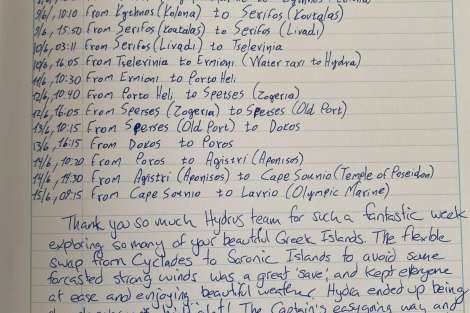 9/6, 10:10 From Kythnos (Kolona) to Serifos (Koutalas)
9/6, 15:50 From Serifos (Koutalas) to Serifos (Livadi)
10/6, 03:11 From Serifos (Livadi) to Tselevinia
10/6, 16:05 From Tselevinia to Ermioni (Water Taxi to Hydra)
11/6, 10:30 From Ermioni to Porto Heli
12/6, 10:40 From Porto Heli to Spetses (Zogeria)
12/6, 16:05 From Spetses (Zogeria) to Spetses (Old Port)
13/6, 10:15 From Spetses (Old Port) to Dokos
13/6, 16:15 From Dokos to Poros
14/6, 10:20 From Poros to Agistri (Aponisos)
14/6, 14:30 From Agistri (Aponisos) to Cape Sounio (Temple of Poseidon)
15/6, 08:15 From Cape Sounio to Lavrio (Olympic Marine)
Thank you so much Hydrus team for such a fantastic week
exploring so many of your beautiful Greek Islands. The flexible
swap from Cyclades to Saronic Islands to avoid some
forcasted strong winds was a great 'save', and kept everyone
at ease and enjoying beautiful weather. Hydra ended up being
The Captain's easygoing way and